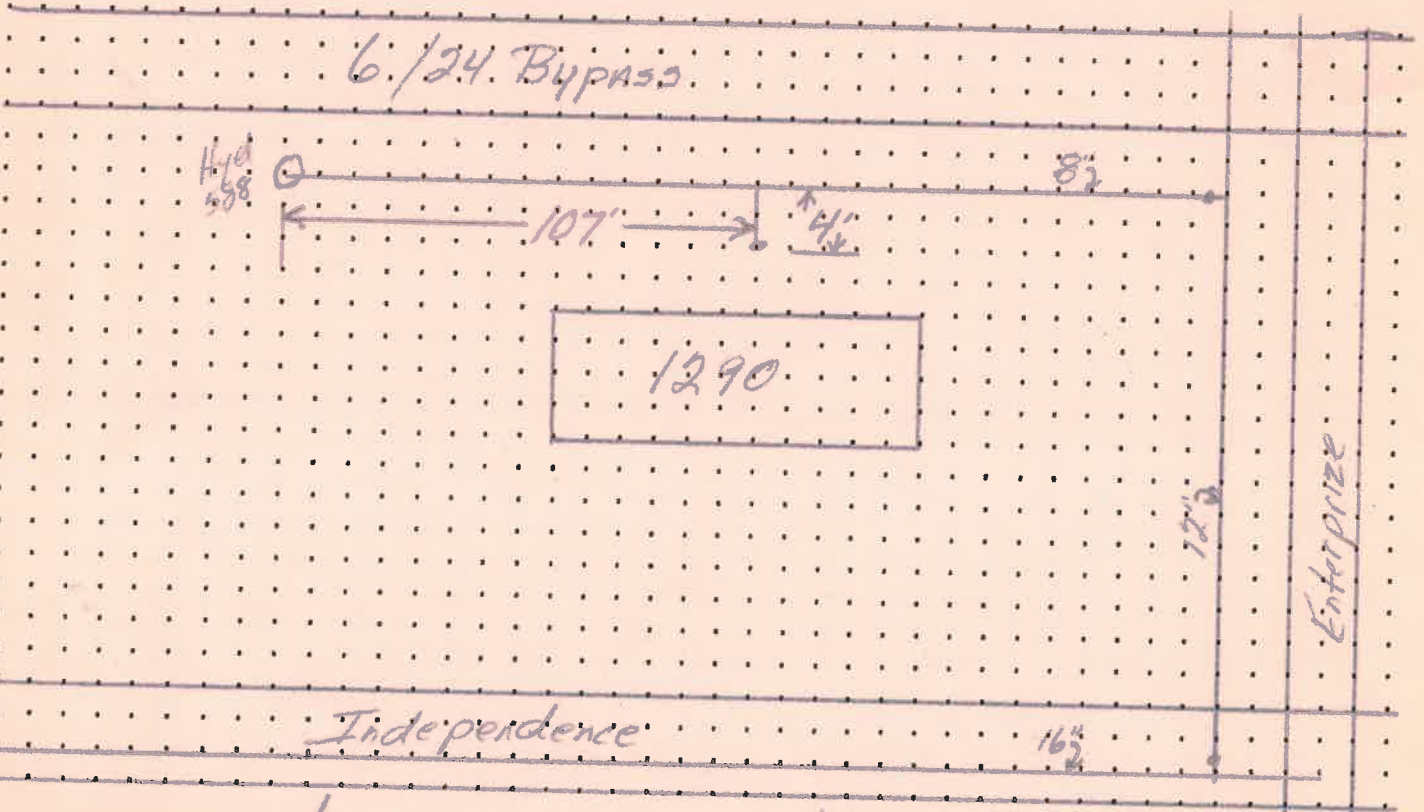 6/24 Bypass
Hyd
588
8"
107'
4'
1290
12"
Enterprize
Independence
16"